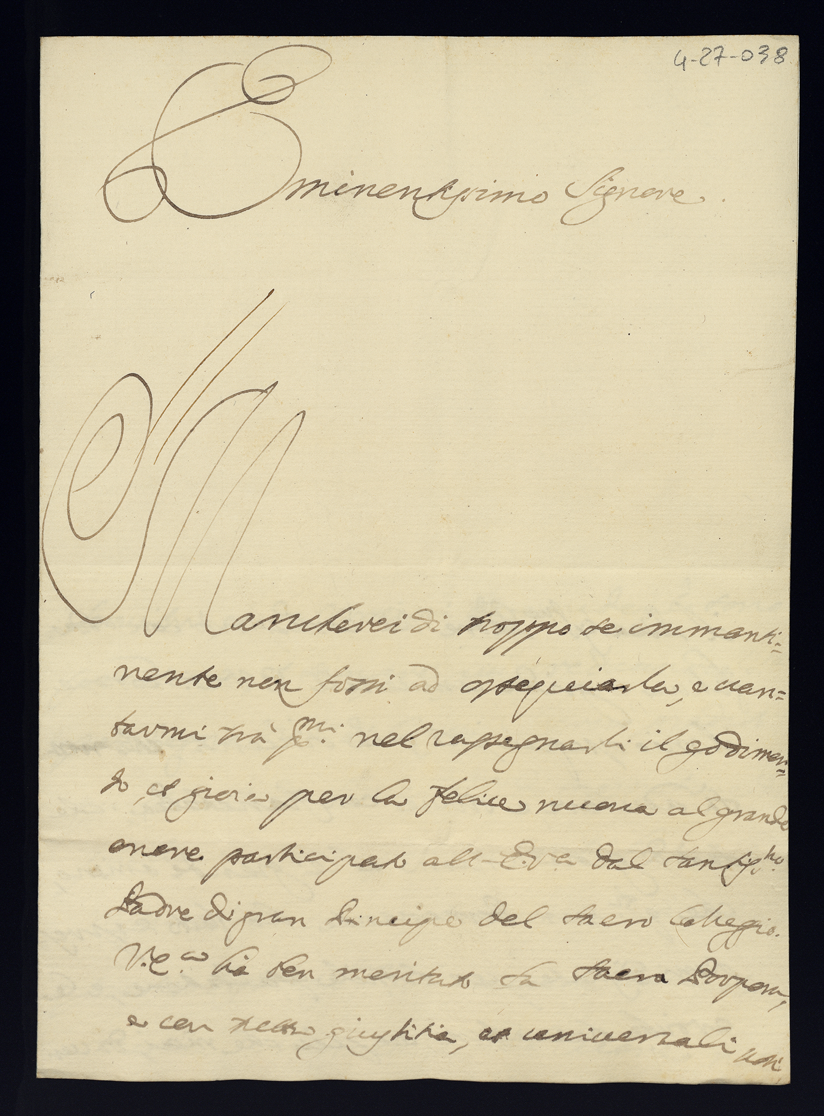 4-27-038
Eminentissimo Signore.
Mancherei di troppo se immanti=
nente non fossi ad ossequiarla, e van=
tarmi trà p.mi nel rassegnarli il godimen=
to, et gioia per la felice nuova al grande
onore participato all'E.V.a dal Santiss.mo
Padre di gran Principe del Sacro Collegio.
V.E.a hà ben meritato la Sacra Porpora,
e con giustitia, et universali